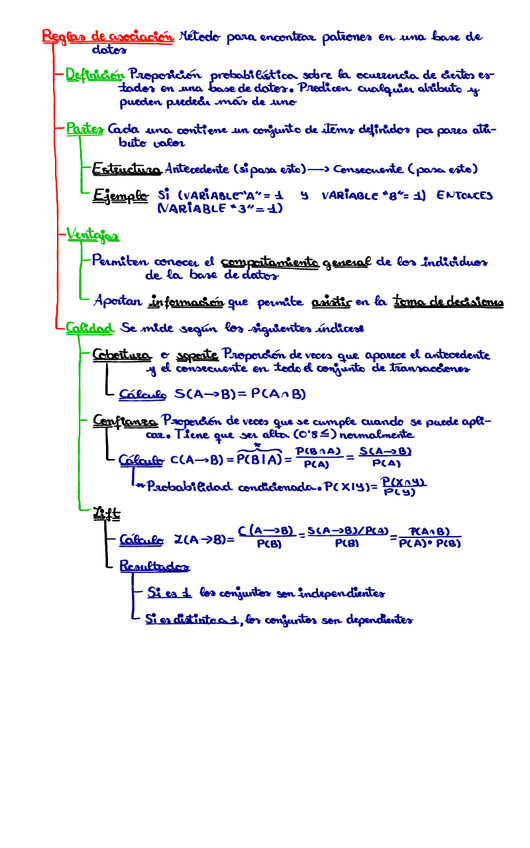 Reglas de asociación Método para encontrar patrones en una base de
datos
Definición Proposición probabilística sobre la ocurrencia de ciertos es-
tados en una base de datos. Predicen cualquier atributo y
pueden predecir más de uno
Partes Cada una contiene un conjunto de ítems definidos por pares atri-
buto valor
Estructura Antecedente (si pasa esto) → Consecuente (pasa esto)
Ejemplo Si (VARIABLE "A" = 1 y VARIABLE "8" = 1) ENTONCES
(VARIABLE "3" = 1)
Ventajas
Permiten conocer el comportamiento general de los individuos
de la base de datos
Aportan información que permite asistir en la toma de decisiones
Calidad Se mide según los siguientes índices
Cobertura o soporte Proporción de veces que aparece el antecedente
y el consecuente en todo el conjunto de transacciones
Cálculo S(A→B) = P(A∩B)
Confianza Proporción de veces que se cumple cuando se puede apli-
car. Tiene que ser alta (0'8≤) normalmente
Cálculo C(A→B) = P(B|A)* = P(B∩A)/P(A) = S(A→B)/P(A)
*Probabilidad condicionada. P(X|Y) = P(X∩Y)/P(Y)
Lift
Cálculo L(A→B) = C(A→B)/P(B) = S(A→B)/P(A)/P(B) = P(A∩B)/P(A)•P(B)
Resultados
Si es 1 los conjuntos son independientes
Si es distinto a 1, los conjuntos son dependientes